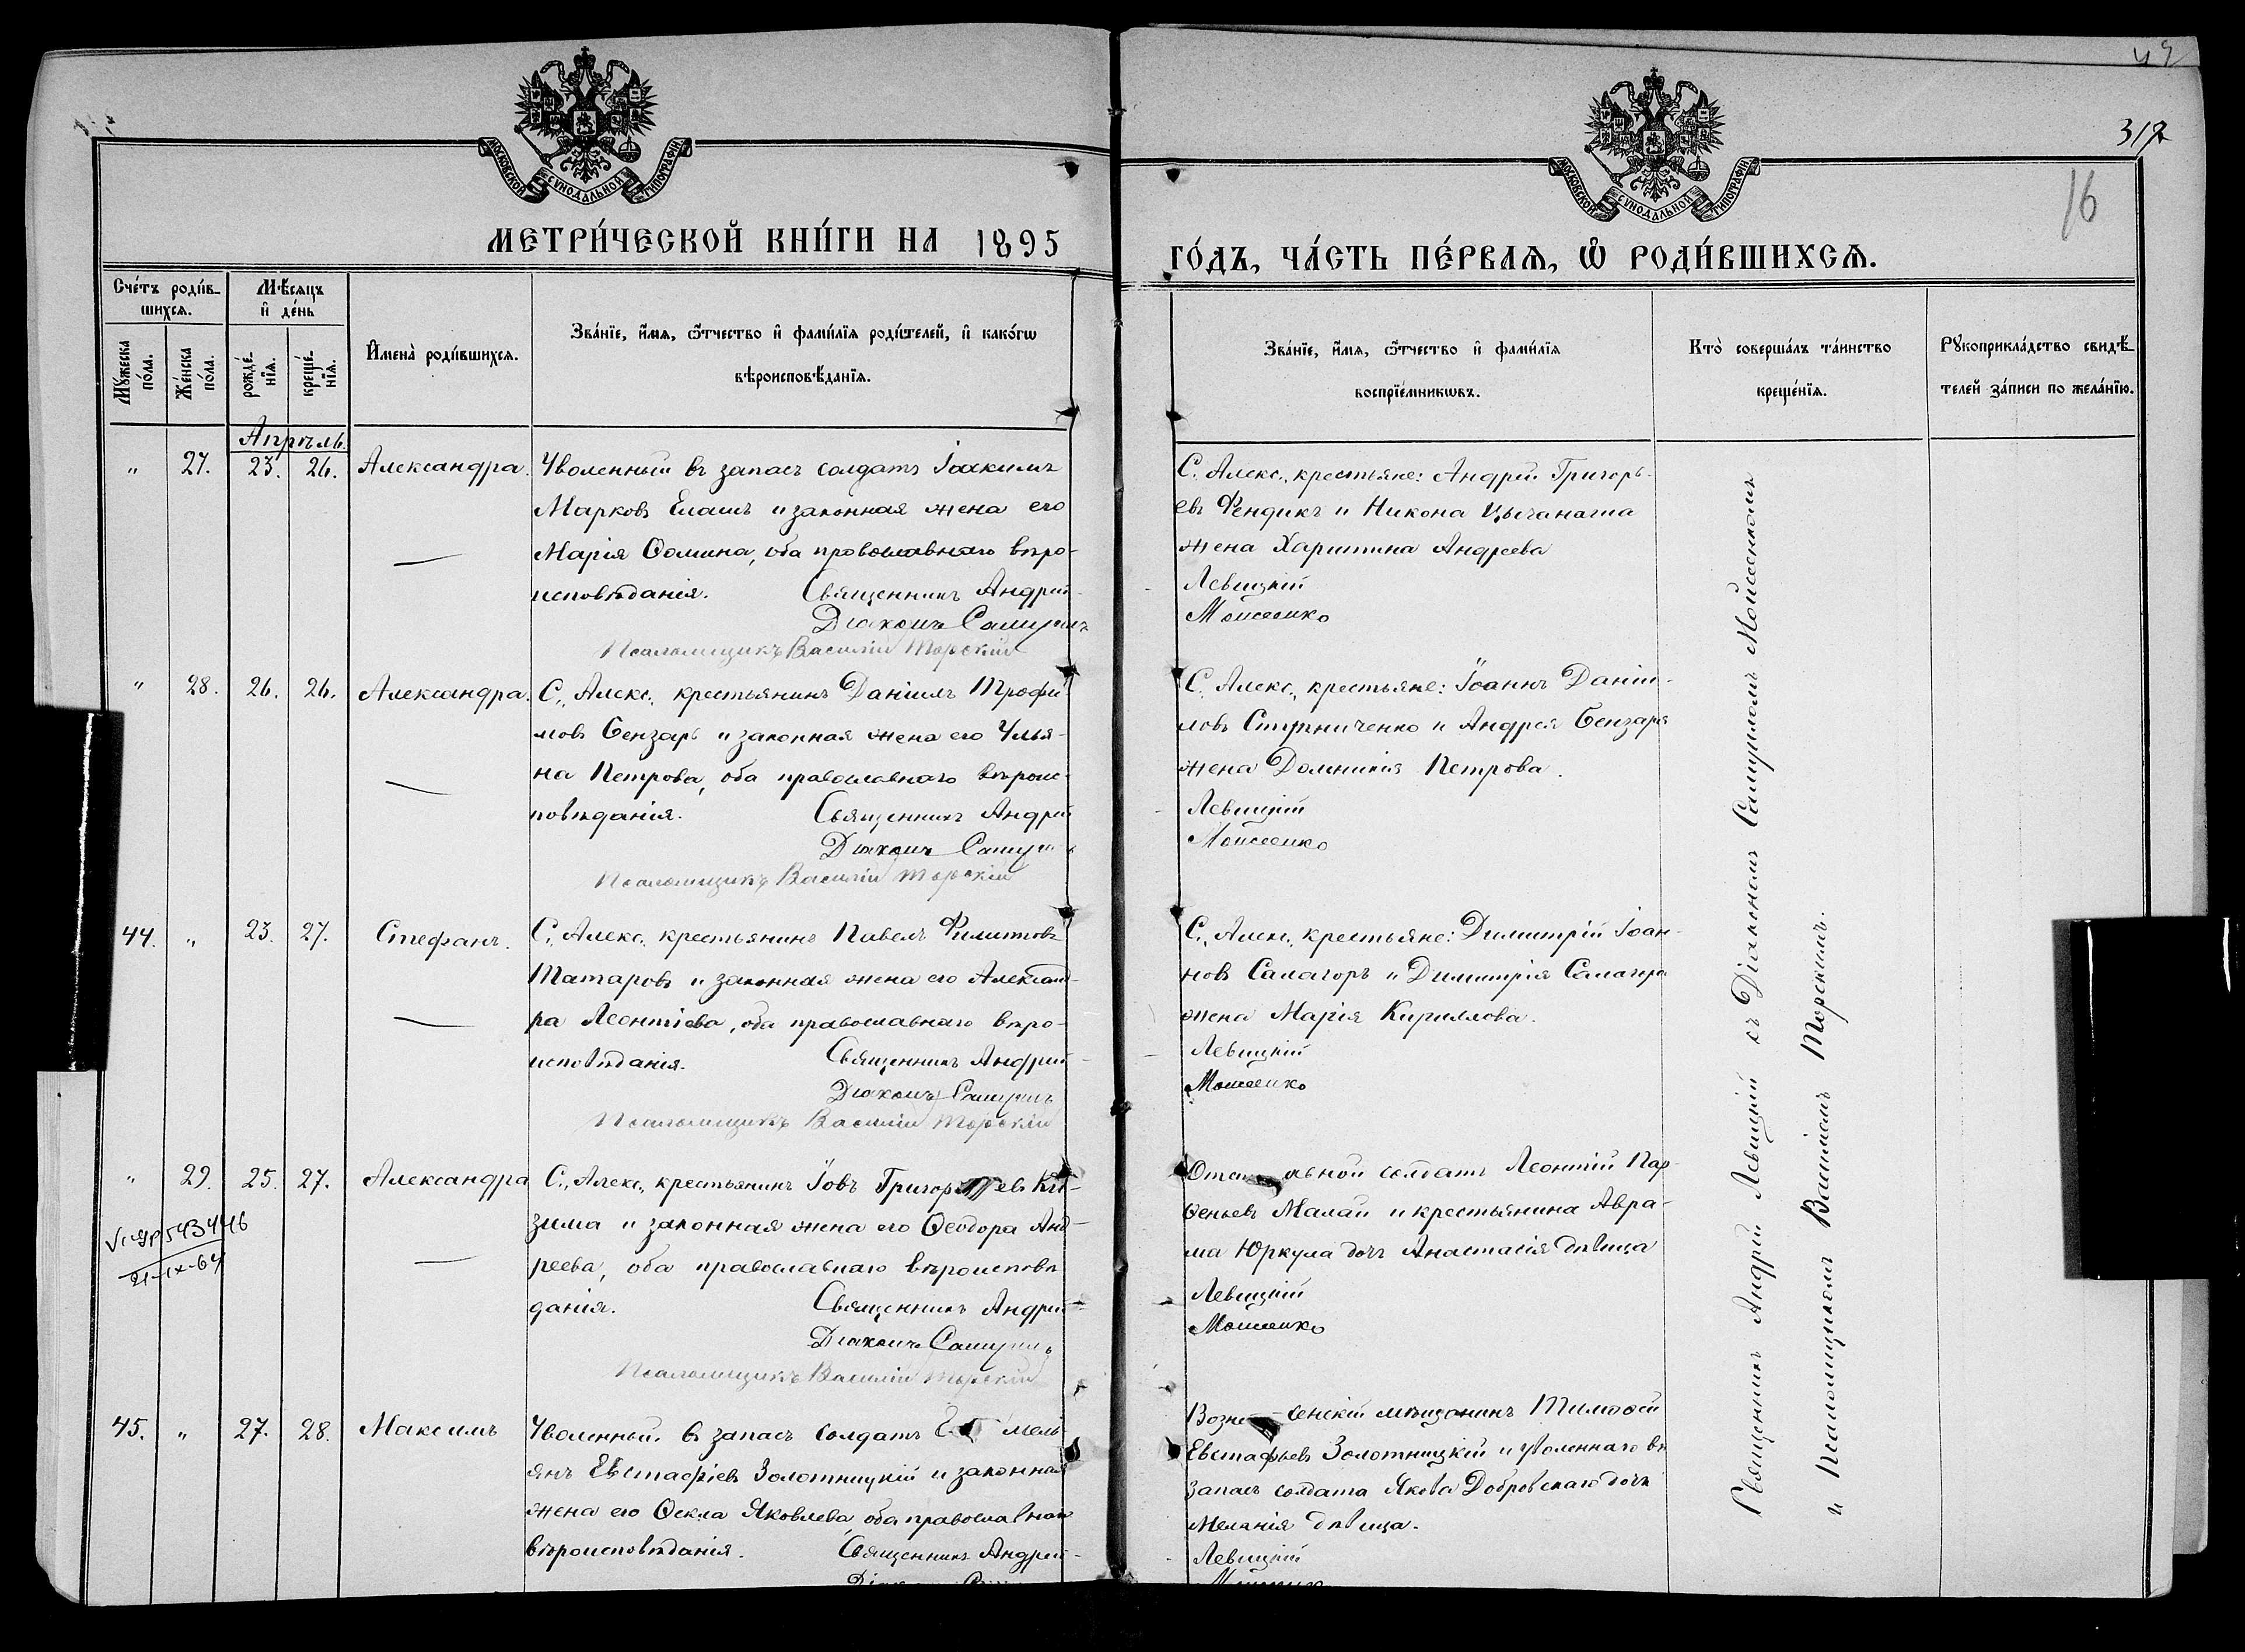 49
317
16
МОСКОВСКОЙ СѴНОДАЛЬНОЙ ТИПОГРАФІИ
МОСКОВСКОЙ СѴНОДАЛЬНОЙ ТИПОГРАФІИ
МЕТРИ́ЧЕСКОЙ КНИ́ГИ НА 1895
ГО́ДЪ, ЧА́СТЬ ПЕ́РВАѦ, Ѡ҆ РОДИ́ВШИХСѦ.
Сче́тъ роди́в-
шихсѧ.
Мѣ́сяцъ
и҆ де́нь
Мꙋ́жеска
по́ла.
Же́нска
по́ла.
рожде́-
нїѧ.
креще́-
нїѧ.
И҆мена̀ роди́вшихсѧ.
Зва́нїе, и҆́мѧ, ѻ҆́тчество и҆ фами́лїѧ роди́телей, и҆ како́гѡ
вѣроисповѣ́данїѧ.
Зва́нїе, и҆́мѧ, ѻ҆́тчество и҆ фами́лїѧ
воспрїе́мникѡвъ.
Кто̀ соверша́лъ та́инство
креще́нїѧ.
Рꙋкоприкла́дство свидѣ́-
телей за́писи по жела́нїю.
Апрѣль.
" 27. 23. 26. Александра.
Уволенный въ запасъ солдатъ Іоакимъ
Марковъ Елашъ и законная жена его
Марія Ѳомина, оба православнаго вѣро-
исповѣданія. Священникъ Андрей
Діаконъ Самуилъ
Псаломщикъ Василій Торскій
С. Алекс., крестьяне: Андрей Григорь-
евъ Фендикъ и Никона Цыганаша
жена Харитина Андреева
Левицкій
Моисеенко
" 28. 26. 26. Александра.
С. Алекс. крестьянинъ Даніилъ Трофи-
мовъ Бензарь и законная жена его Улья-
на Петрова, оба православнаго вѣроис-
повѣданія. Священникъ Андрей
Діаконъ Самуилъ
Псаломщикъ Василій Торскій
С. Алекс., крестьяне: Іоаннъ Даніи-
ловъ Ступниченко и Андрея Бензаря
жена Домникія Петрова.
Левицкій
Моисеенко
44. " 23. 27. Стефанъ.
С. Алекс. крестьянинъ Павелъ Филиповъ
Татаровъ и законная жена его Александ-
ра Леонтіева, оба православнаго вѣро-
исповѣданія. Священникъ Андрей
Діаконъ Самуилъ
Псаломщикъ Василій Торскій
С. Алекс. крестьяне: Димитрій Іоан-
новъ Самагоръ и Димитрія Самагора
жена Марія Кириллова.
Левицкій
Моисеенко
" 29. 25. 27. Александра
С. Алекс., крестьянинъ Іовъ Григорьевъ Ки-
зима и законная жена его Ѳеодора Анд-
реева, оба православнаго вѣроисповѣ
данія. Священникъ Андрей
Діаконъ Самуилъ
Псаломщикъ Василій Торскій
543446
21-IX-64
Отставной солдатъ Леонтій Пар-
ѳеньевъ Малай и крестьянина Авра-
ма Юркула дочь Анастасія дѣвица
Левицкій
Моисеенко
45. " 27. 28. Максимъ
Уволенный въ запасъ солдатъ Емель-
янъ Евстафіевъ Золотницкій и законная
жена его Ѳекла Яковлева, оба православнаго
вѣроисповѣданія. Священникъ Андрей
Вознесенскій мѣщанинъ Тимоѳей
Евстафьевъ Золотницкій и уволеннаго въ
запасъ солдата Якова Добровскаго дочь
Меланія дѣвица.
Левицкій
Священникъ Андрей Левицкій съ Діакономъ Самуиломъ Моисеенкомъ
и Псаломщикомъ Василіемъ Торскимъ.